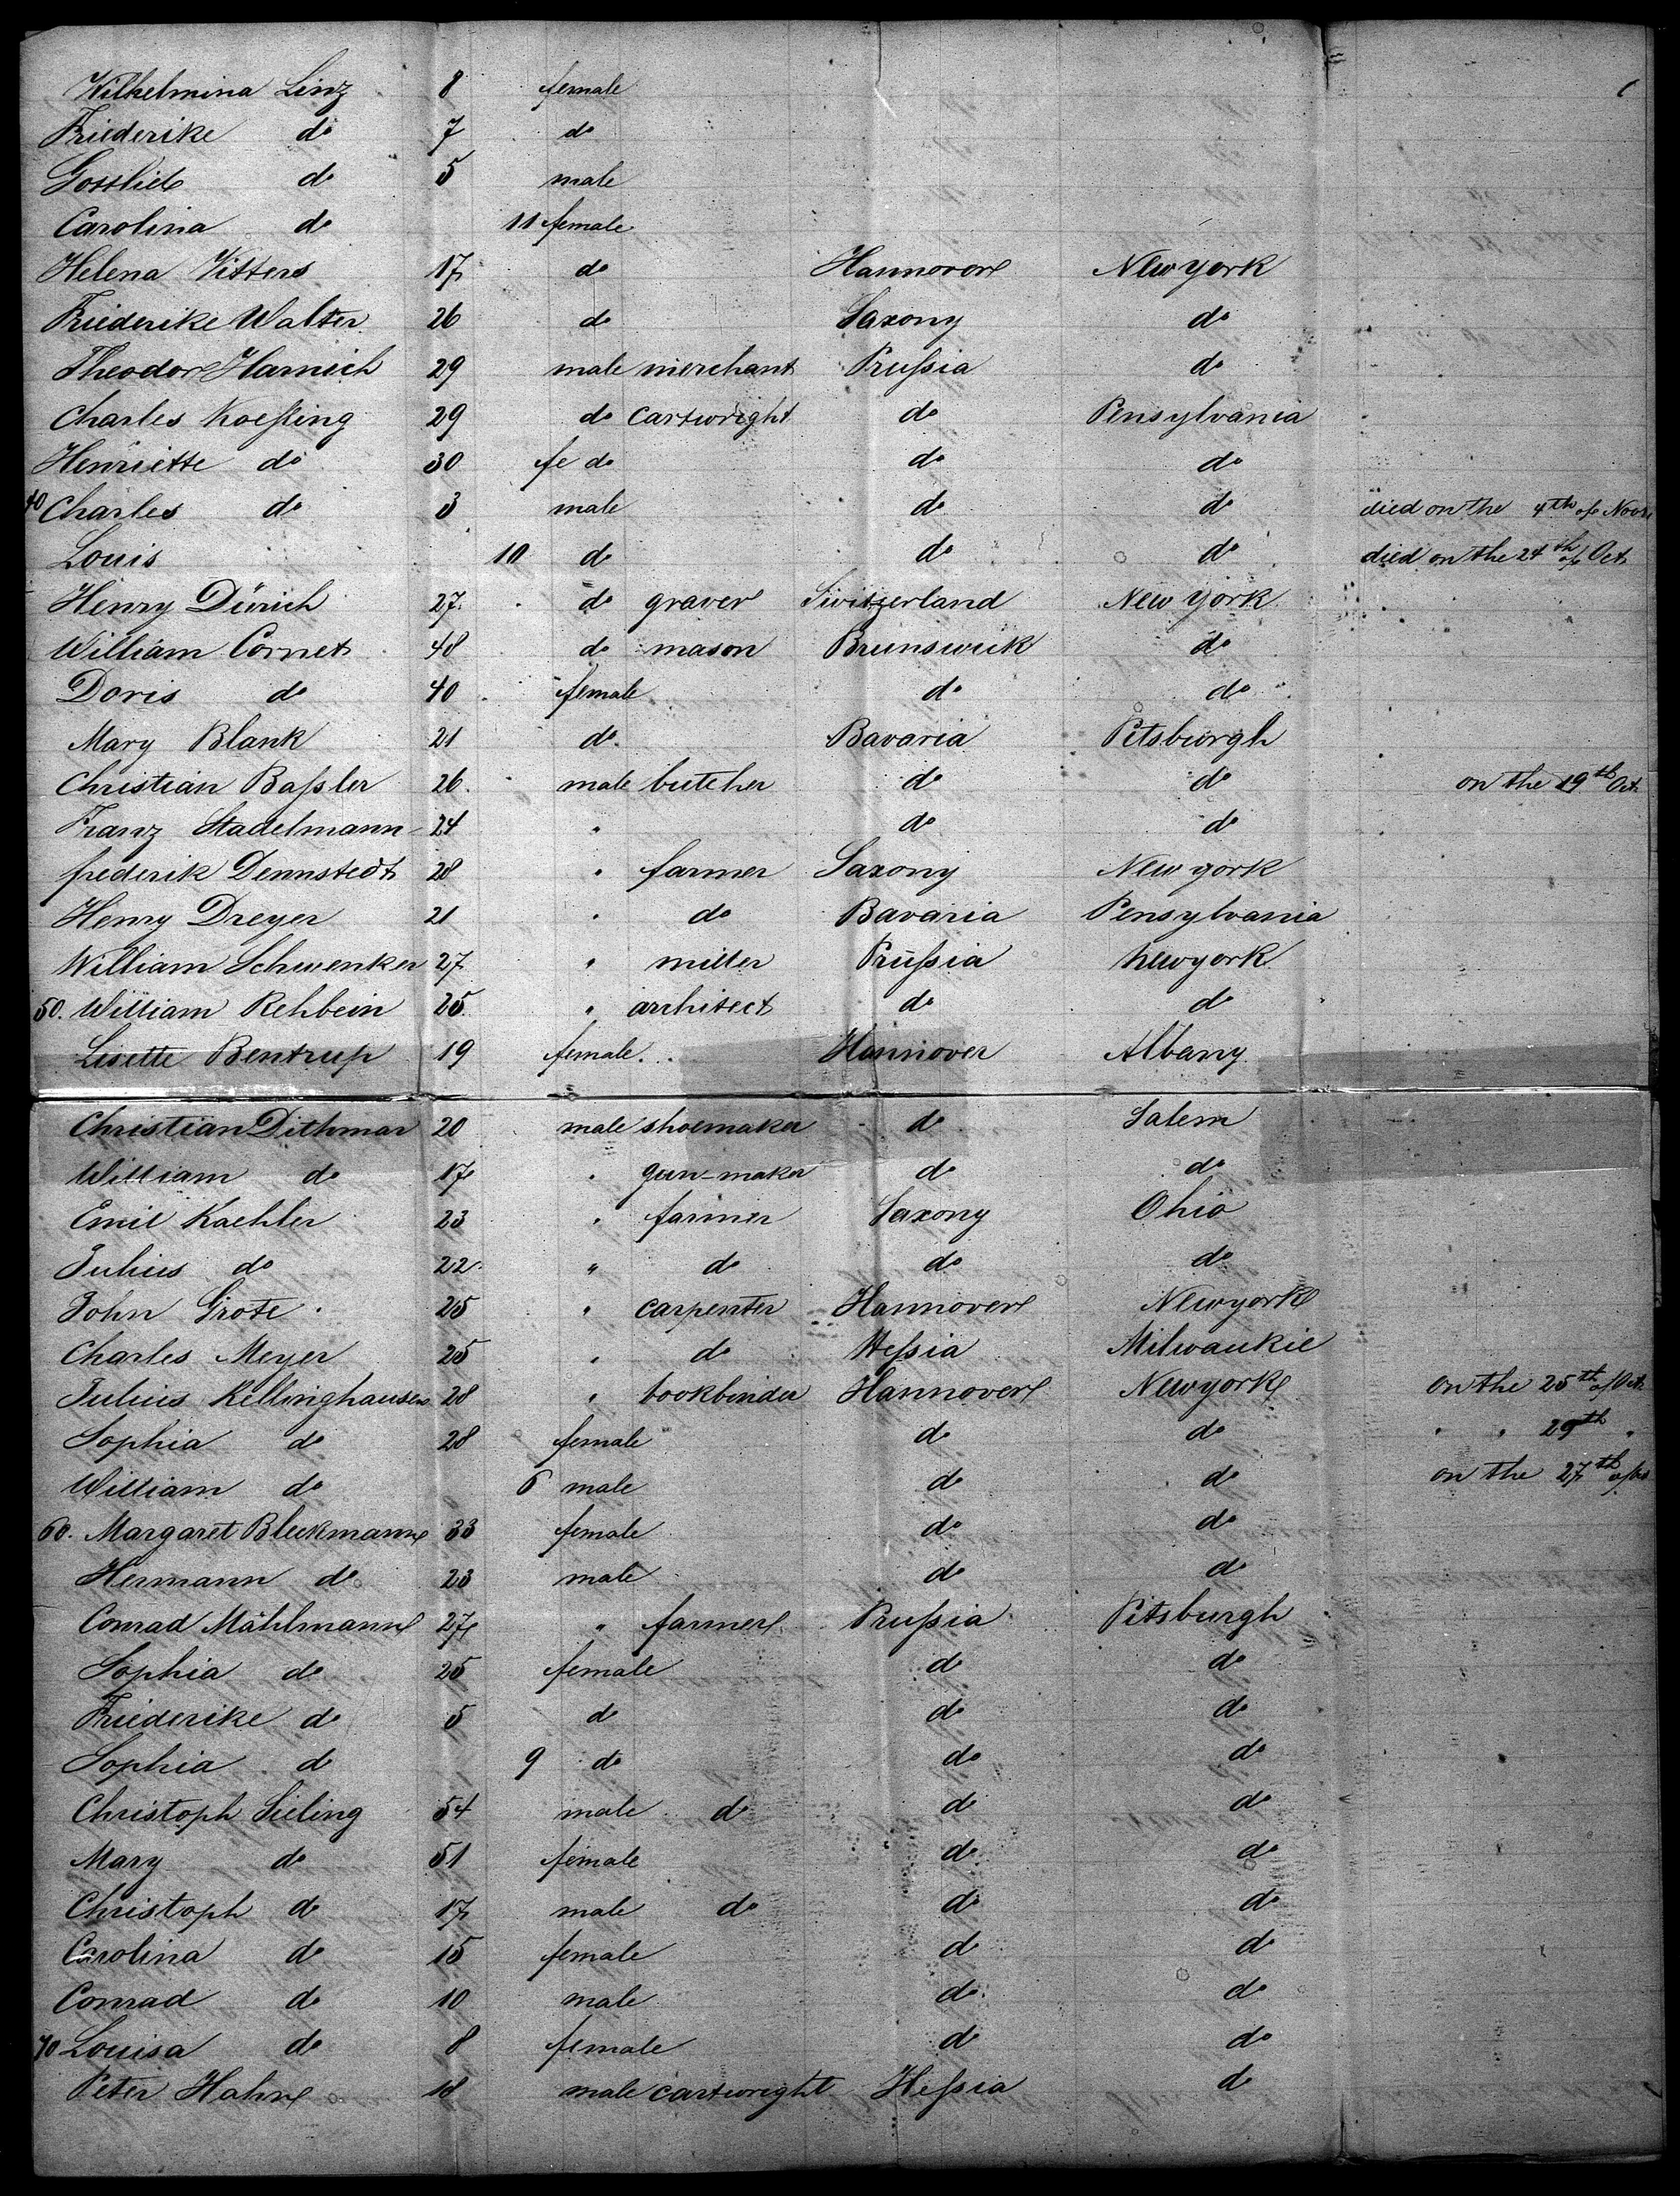 Wilhelmina Linz 8 female
Friederike do 7 do
Gottlieb do 5 male
Carolina do 11 female
Helena Vitters 17 do Hannover New york
Friederike Walter 26 do Saxony do
Theodor Harnich 29 male merchant Prußia do
Charles Koeßing 29 do cartwright do Pensylvania
Henriette do 30 fe do do do
40 Charles do 3 male do do died on the 4th of Novb
Louis 10 do do do died on the 24th of Oct
Henry Dürich 27 do graver Switzerland New york
William Cornet 48 do mason Brunswick do
Doris do 40 female do do
Mary Blank 21 do Bavaria Pitsburgh
Christian Baßler 26 male butcher do do on the 19th Oct
Franz Stadelmann 24 " do do
frederik Dennstedt 28 " farmer Saxony New york
Henry Dreyer 21 " do Bavaria Pensylvania
William Schwenker 27 " miller Prußia Newyork
50. William Rehbein 25 " architect do do
Lisette Bentrup 19 female Hannover Albany
Christian Dithmar 20 male shoemaker do Salem
William do 17 " gun-maker do do
Emil Kaehler 23 " farmer Saxony Ohio
Julius do 22 " do do do
John Grote 25 " carpenter Hannover Newyork
Charles Meyer 25 " do Heßia Milwaukie
Julius Rellinghausen 28 " bookbinder Hannover Newyork on the 25th of Oct
Sophia do 28 female do do " " 29th "
William do 6 male do do on the 27th of
60. Margaret Bleckmann 33 female do do
Hermann do 23 male do do
Conrad Mählmann 27 " farmer Prußia Pitsburgh
Sophia do 25 female do do
Friederike do 5 do do do
Sophia do 9 do do do
Christoph Sieling 54 male do do do
Mary do 51 female do do
Christoph do 17 male do do do
Carolina do 15 female do do
Conrad do 10 male do do
70 Louisa do 8 female do do
Peter Hahn 18 male cartwright Heßia do